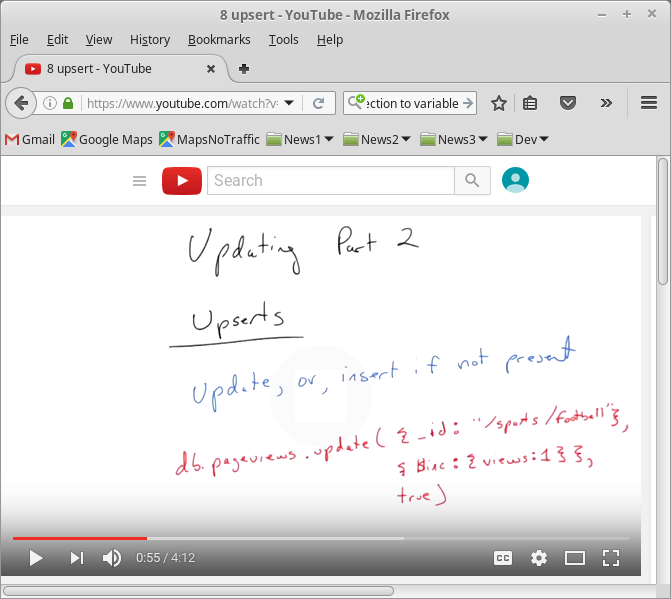 8 upsert - YouTube - Mozilla Firefox
File Edit View History Bookmarks Tools Help
8 upsert - YouTube
https://www.youtube.com/watch?v= ection to variable
Gmail Google Maps MapsNoTraffic News1 News2 News3 Dev
Search
Updating Part 2
Upserts
Update, or, insert if not present
db.pageviews.update( { _id: "/sports/football"},
{ $inc: { views:1 } },
true)
0:55 / 4:12 CC